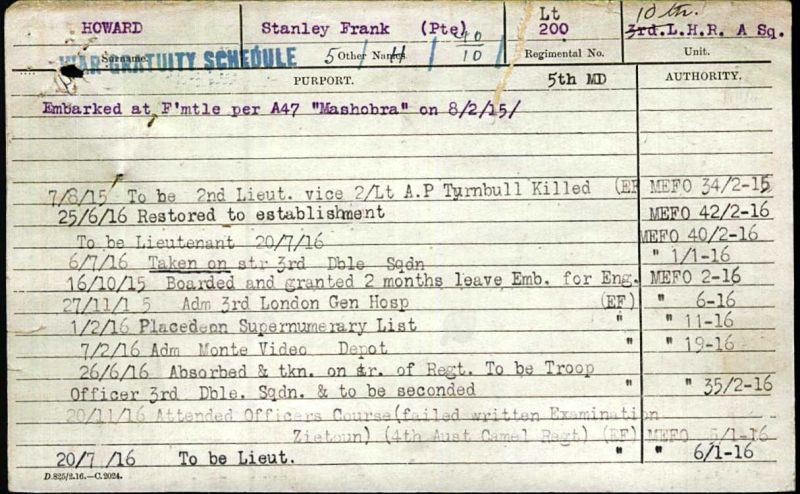 HOWARD Stanley Frank (Pte) Lt 200 10th. 3rd.L.H.R. A Sq.
Surname. Other Names. Regimental No. Unit.
WAR GRATUITY SCHEDULE 5 / H / 40/10
PURPORT. 5th MD AUTHORITY.
Embarked at F'mtle per A47 "Mashobra" on 8/2/15/
7/8/15 To be 2nd Lieut. vice 2/Lt A.P Turnbull Killed (EF MEFO 34/2-15
25/6/16 Restored to establishment MEFO 42/2-16
To be Lieutenant 20/7/16 MEFO 40/2-16
6/7/16 Taken on str 3rd Dble Sqdn " 1/1-16
16/10/15 Boarded and granted 2 months leave Emb. for Eng. MEFO 2-16
27/11/1 5 Adm 3rd London Gen Hosp (EF) " 6-16
1/2/16 Placedeon Supernumerary List " " 11-16
7/2/16 Adm Monte Video Depot " " 19-16
26/6/16 Absorbed & tkn. on str. of Regt. To be Troop
Officer 3rd Dble. Sqdn. & to be seconded " " 35/2-16
20/11/16 Attended Officers Course(failed written Examination
Zietoun) (4th Aust Camel Regt) (EF) MEFO 5/1-16
20/7 /16 To be Lieut. " " 6/1-16
D.825/2.16.—C.2024.